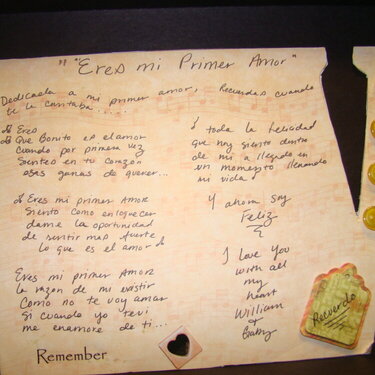 " "Eres mi Primer Amor"
Dedicada a mi primer amor, Recuerdas cuando
te la cantaba.....
Eres
Que Bonito es el amor
Cuando por primera vez
Sientes en tu corazón
esas ganas de querer...
Eres mi primer Amor
Siento como enloquecer
dame la oportunidad
de sentir mas fuerte
lo que es el amor
Eres mi primer Amor
la razon de mi existir
Como no te voy amar
Si cuando yo te vi
me enamore de ti...
toda la felicidad
que hoy siento dentro
de mi a llegado en
un momento llenando
mi vida
Y ahora soy
Feliz
I love you
with all
my
heart
William
+
Baby
Recuerdo
Remember